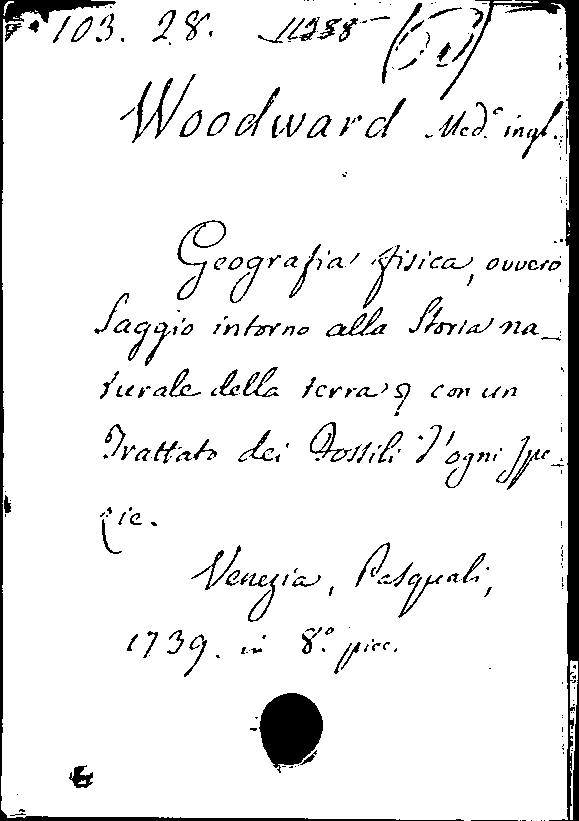 103. 28. 11238
Woodward Med.º ingl.
Geografia fisica, ovvero
Saggio intorno alla Storia na-
turale della terra con un
Trattato dei Fossili d'ogni spe-
zie.
Venezia, Pasquali,
1739. in 8.º picc.